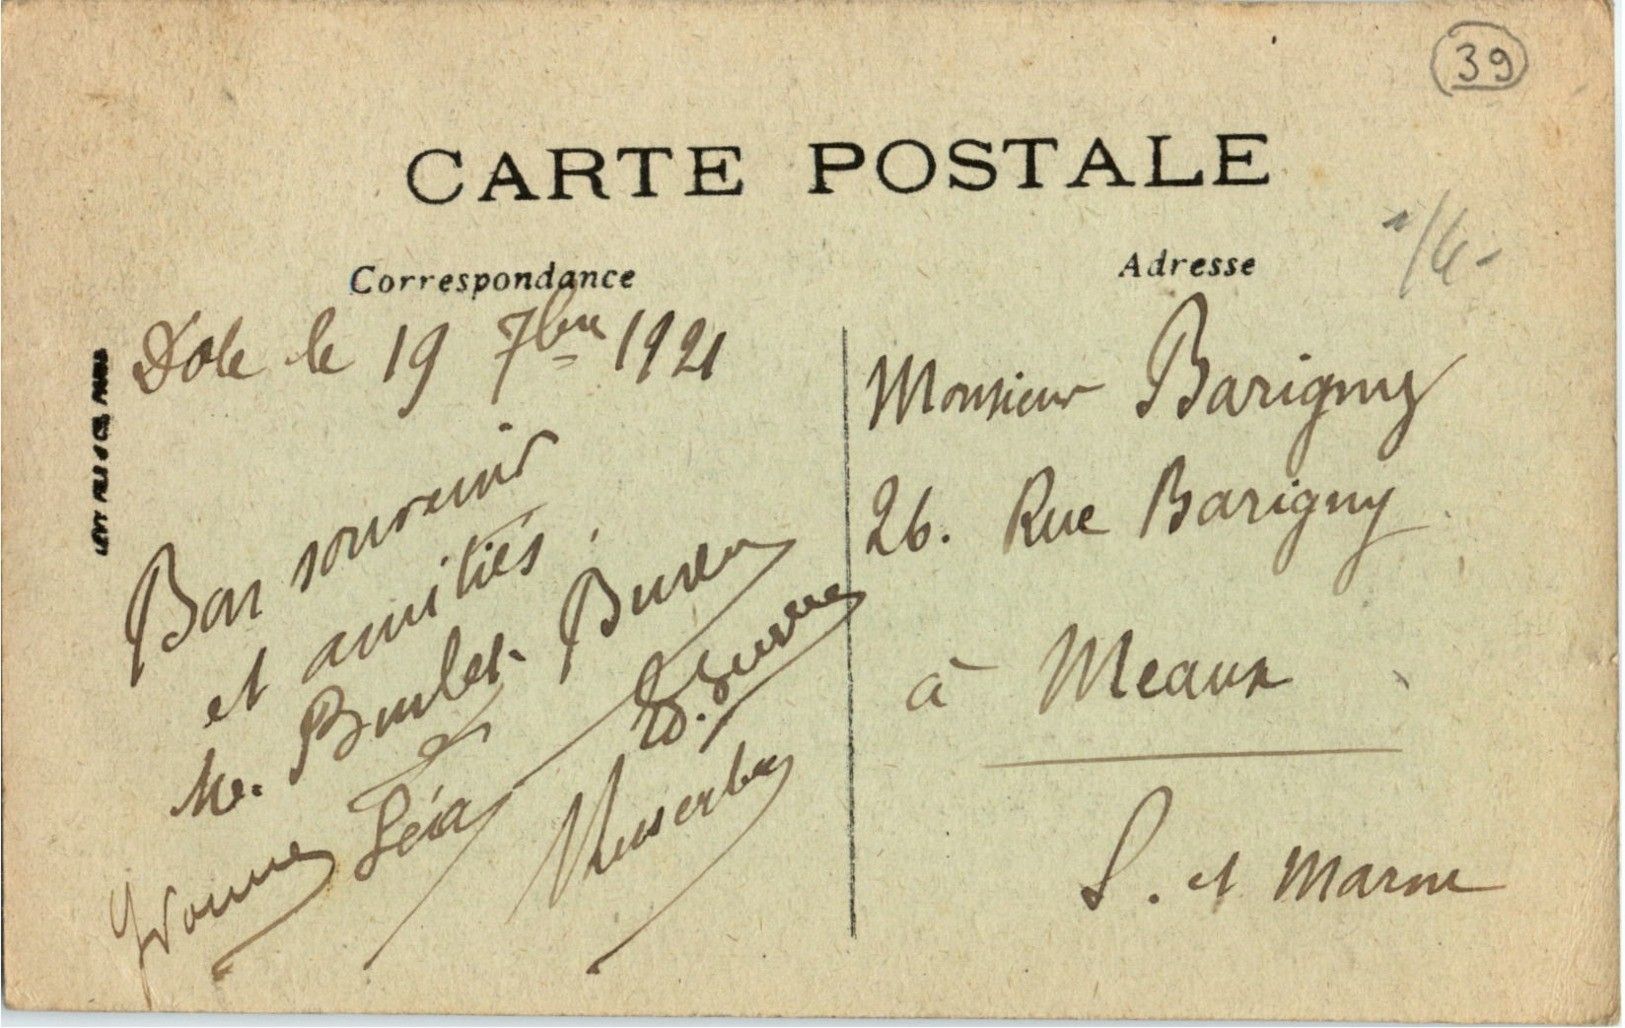 39
CARTE POSTALE
Correspondance
Adresse
LÉVY FILS & CIE, PARIS
Dole le 19 7bre 1921
Bon souvenir
et amitiés.
Yvonne
Léa
Monsieur Barigny
26. Rue Barigny
à Meaux
S. et Marne